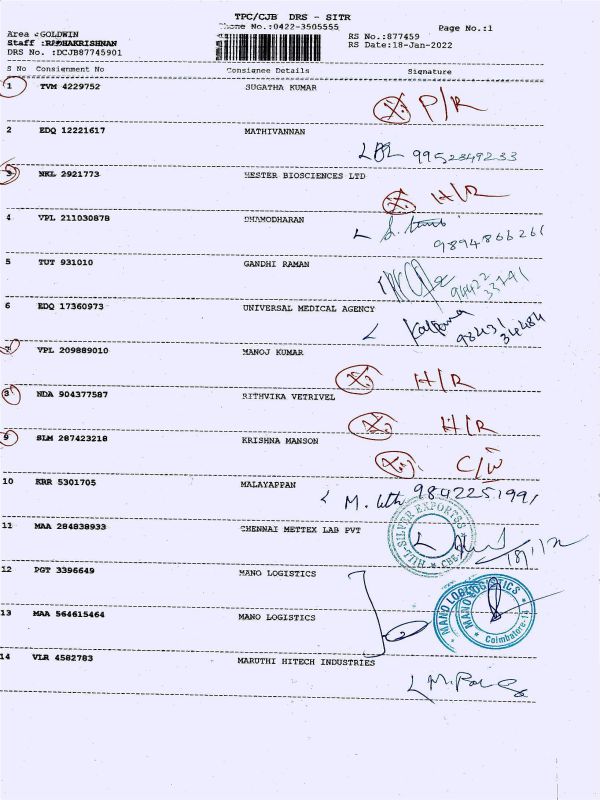 TPC/CJB DRS - SITR
Phone No.:0422-3505555
Page No.:1
Area :GOLDWIN
RS No.:877459
Staff :RADHAKRISHNAN
RS Date:18-Jan-2022
DRS No. :DCJB87745901
S No Consignment No Consignee Details Signature
1 TVM 4229752 SUGATHA KUMAR
P/R
2 EDQ 12221617 MATHIVANNAN
9952349233
3 NKL 2921773 HESTER BIOSCIENCES LTD
H/R
4 VPL 211030878 DHAMODHARAN
9894866261
5 TUT 931010 GANDHI RAMAN
6 EDQ 17360973 UNIVERSAL MEDICAL AGENCY
Kalpana
98431
34484
7 VPL 209889010 MANOJ KUMAR
H/R
8 NDA 904377587 RITHVIKA VETRIVEL
H/R
9 SLM 287423218 KRISHNA MANSON
C/W
10 KRR 5301705 MALAYAPPAN
9842251991
11 MAA 284838933 CHENNAI METTEX LAB PVT
SILVER EXPORTSS
18/1/22
12 PGT 3396649 MANO LOGISTICS
13 MAA 564615464 MANO LOGISTICS
2
MANO LOGISTICS
Coimbatore-14
14 VLR 4582783 MARUTHI HITECH INDUSTRIES